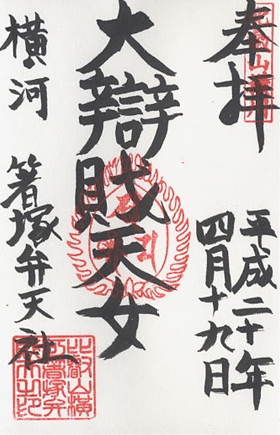 奉拝
平成二十年
四月十九日
大辯賊天女
横河
箸塚弁天社